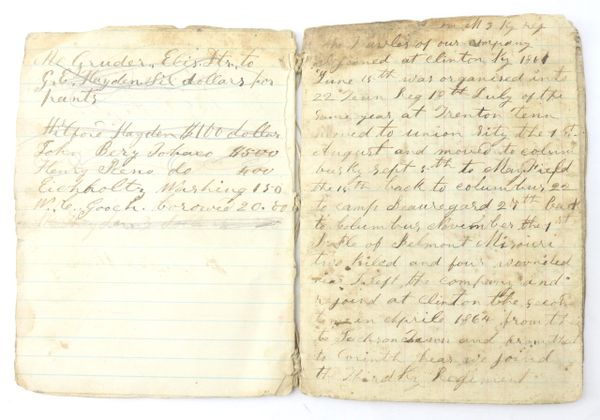 Mc Gruder, Ebis. Dr. to
G. E. Hayden Six dollars for
pants
Hilford Hayden $1.00 dollar
John Bery Tobaco $5.00
Henry do 4.00
Eichholtz Washing 1 50
W. C. Gooch. borowie 20.00
Co M 3 Ky reg
of our company
joined at Clinton Ky 1861
June 15th was organised into
22 Tenn Reg 18th July of the
same year at Trenton tenn
moved to union City the 1st
August and moved to colum
bus ky Sept 5th to Mayfield
the 15th back to columbus 22
to camp Beauregard 27th back
to columbus November the 1st
Battle of Belmont Misouri
two Killed and four wounded
I left the company and
rejoind at Clinton the secon
time in Aprile 1864 from th
to Jackson Tenn and from
to Corinth hear we joind
the Third Ky Regiment